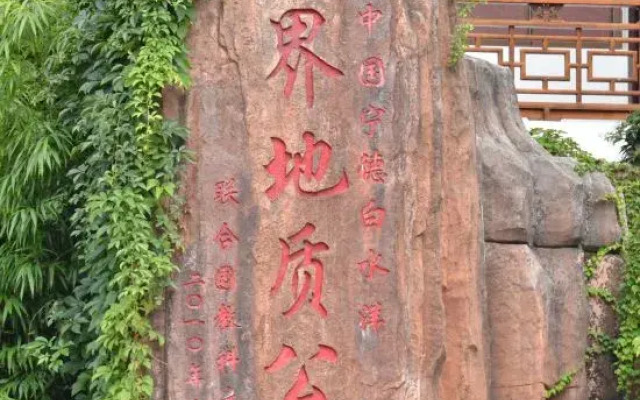 中国宁德白水洋
界地质公
联合国教科
二〇一〇年